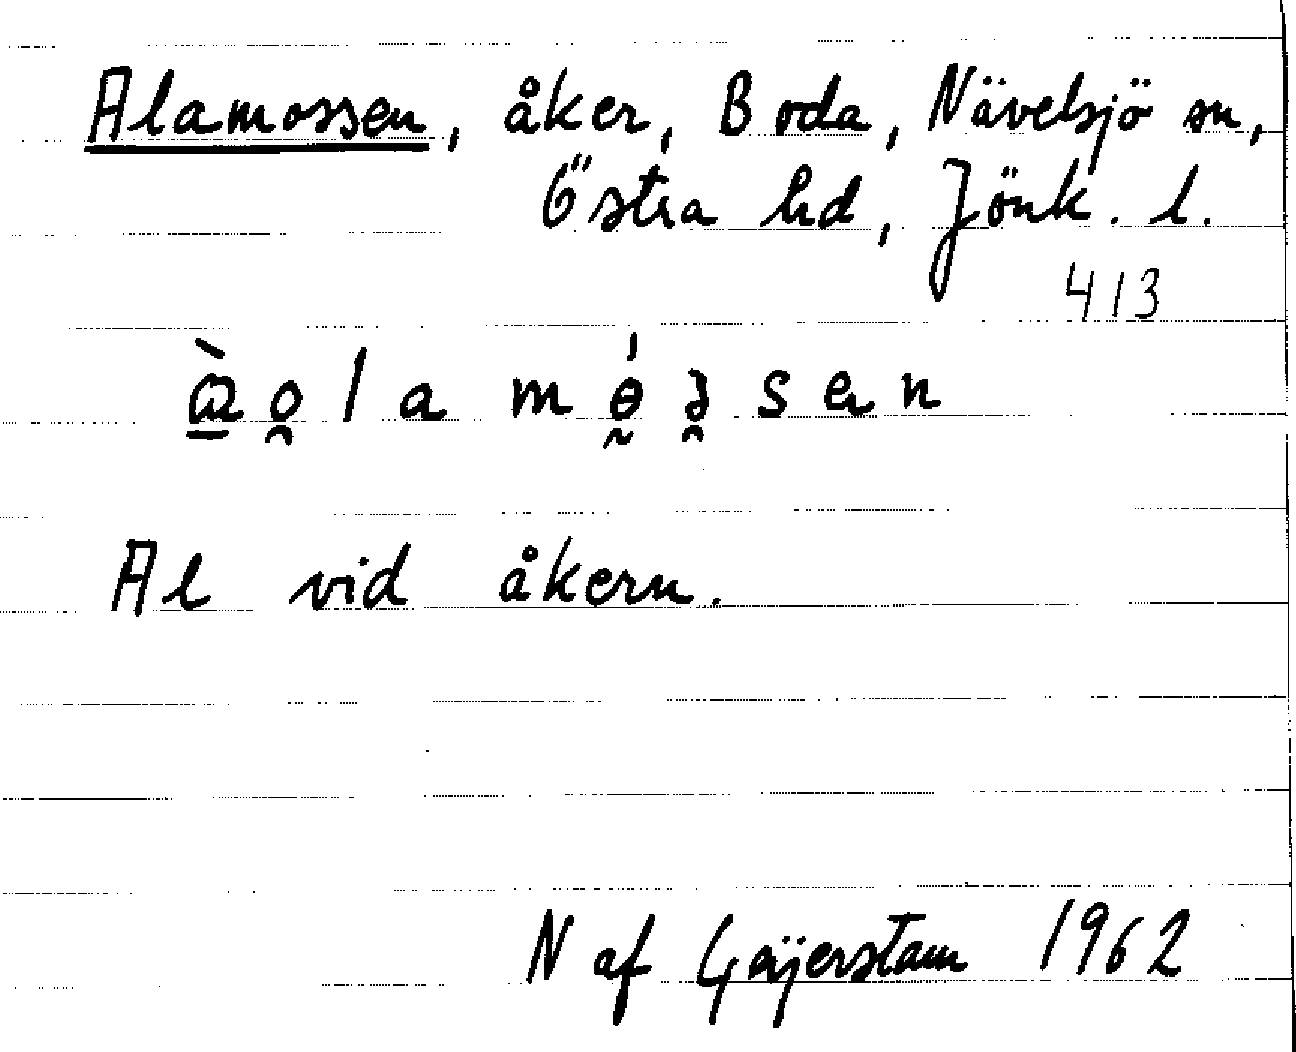 Alamossen, åker, Boda, Nävelsjö sn,
Östra hd, Jönk. l.
413
Al vid åkern.
N af Geijerstam 1962